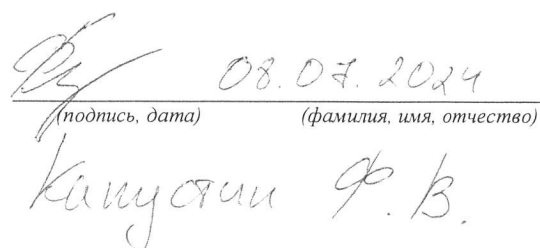 08.07.2024
(подпись, дата) (фамилия, имя, отчество)
Капустин Ф.В.